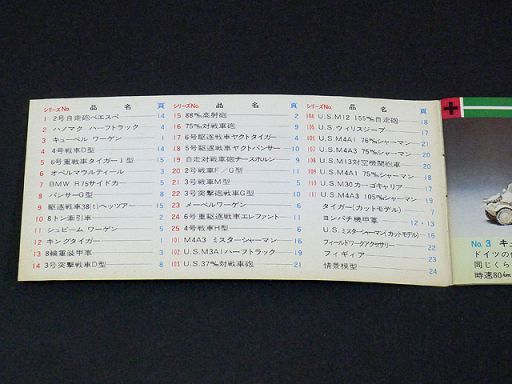 シリーズNo. 品名 頁
1 2号自走砲ベエスペ 14
2 ハノマク ハーフトラック 4
3 キューベル ワーゲン 3
4 4号戦車D型 14
5 6号重戦車タイガーI型 15
6 オペルマウルティール 3
7 BMW R75サイドカー 5
8 パンサーG型 8
9 駆逐戦車38(t)ヘッツァー 15
10 8トン牽引車 2
11 シュビーム ワーゲン 5
12 キングタイガー 1
13 8輪重装甲車 3
14 3号突撃戦車D型 8
シリーズNo. 品名 頁
15 88㎜高射砲 2
16 75㎜対戦車砲 9
17 6号駆逐戦車ヤクトタイガー 4
18 5号駆逐戦車ヤクトパンサー 10
19 自走対戦車砲ナースホルン 9
20 2号戦車F/G型
21 3号戦車M型 5
22 3号突撃砲戦車G型 10
23 メーベルワーゲン 6
24 6号重駆逐戦車エレファント 11
25 4号戦車H型 6
101 M4A3 ミスターシャーマン 16
102 U.S.M3A1ハーフトラック 19
103 U.S.37㎜対戦車砲 21
シリーズNo. 品名 頁
104 U.S.M12 155㎜自走砲 18
105 U.S.ウィリスジープ 17
106 U.S.M4A1 76㎜シャーマン 21
107 U.S.M4A3 75㎜シャーマン 20
108 U.S.M13対空機関砲車 20
109 U.S.M4A1 75㎜シャーマン 18
110 U.S.M30カーゴキャリア 17
111 U.S.M4A3 105㎜シャーマン 19
タイガー(カットモデル) 7
ヨンパチ機甲車 12・13
U.S.ミスターシャーマン(カットモデル) 16
フィールドワークアクセサリー 22
フィギィア 23
情景模型 24
No.3 キュ
ドイツの
同じくら
時速80㎞